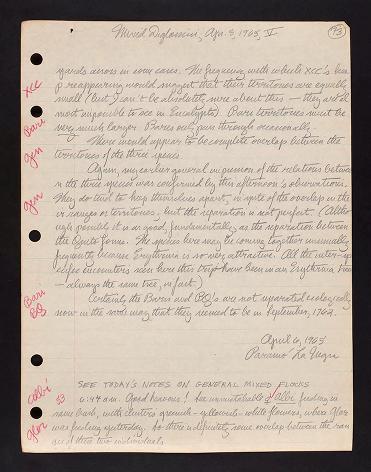 Mixed Diglossas, Apr. 5, 1965, V
93
yards across in some cases. The frequency with which XCC's keep
XCC
reappearing would suggest that their territories are equally
small (but I can't be absolutely sure about this — they are al-
most impossible to see in Eucalypts). Baris territories must be
Bari
very much larger. Baris only pass through occasionally.
gen
There would appear to be complete overlap between the
territories of the three species.
Again, my earlier general impression of the relations between
gen
the three species was confirmed by this afternoon's observations.
They do tend to keep themselves apart, in spite of the overlap in their
ranges or territories, but the separation is not perfect. (Altho-
ugh possibly it is as good, fundamentally, as the separation between
the Quito forms. The species here may be coming together unusually
frequently because Erythrina is so very attractive. All the inter-sp-
ecies encounters seen here this trip have been in an Erythrina tree
— always the same tree, in fact.)
Bari
BQ
Certainly the Baris and BQ's are not separated ecologically
now in the same way that they seemed to be in September, 1962.
April 6, 1965
Paramo La Negra
SEE TODAY'S NOTES ON GENERAL MIXED FLOCKS
albi
53
6:47 a.m. Good heavens! See unmistakable Albi feeding in
same bush, with clusters greenish-yellowish-white flowers, where Glor
glor
was feeding yesterday. So there is definitely some overlap between the ran-
ges of these two individuals.